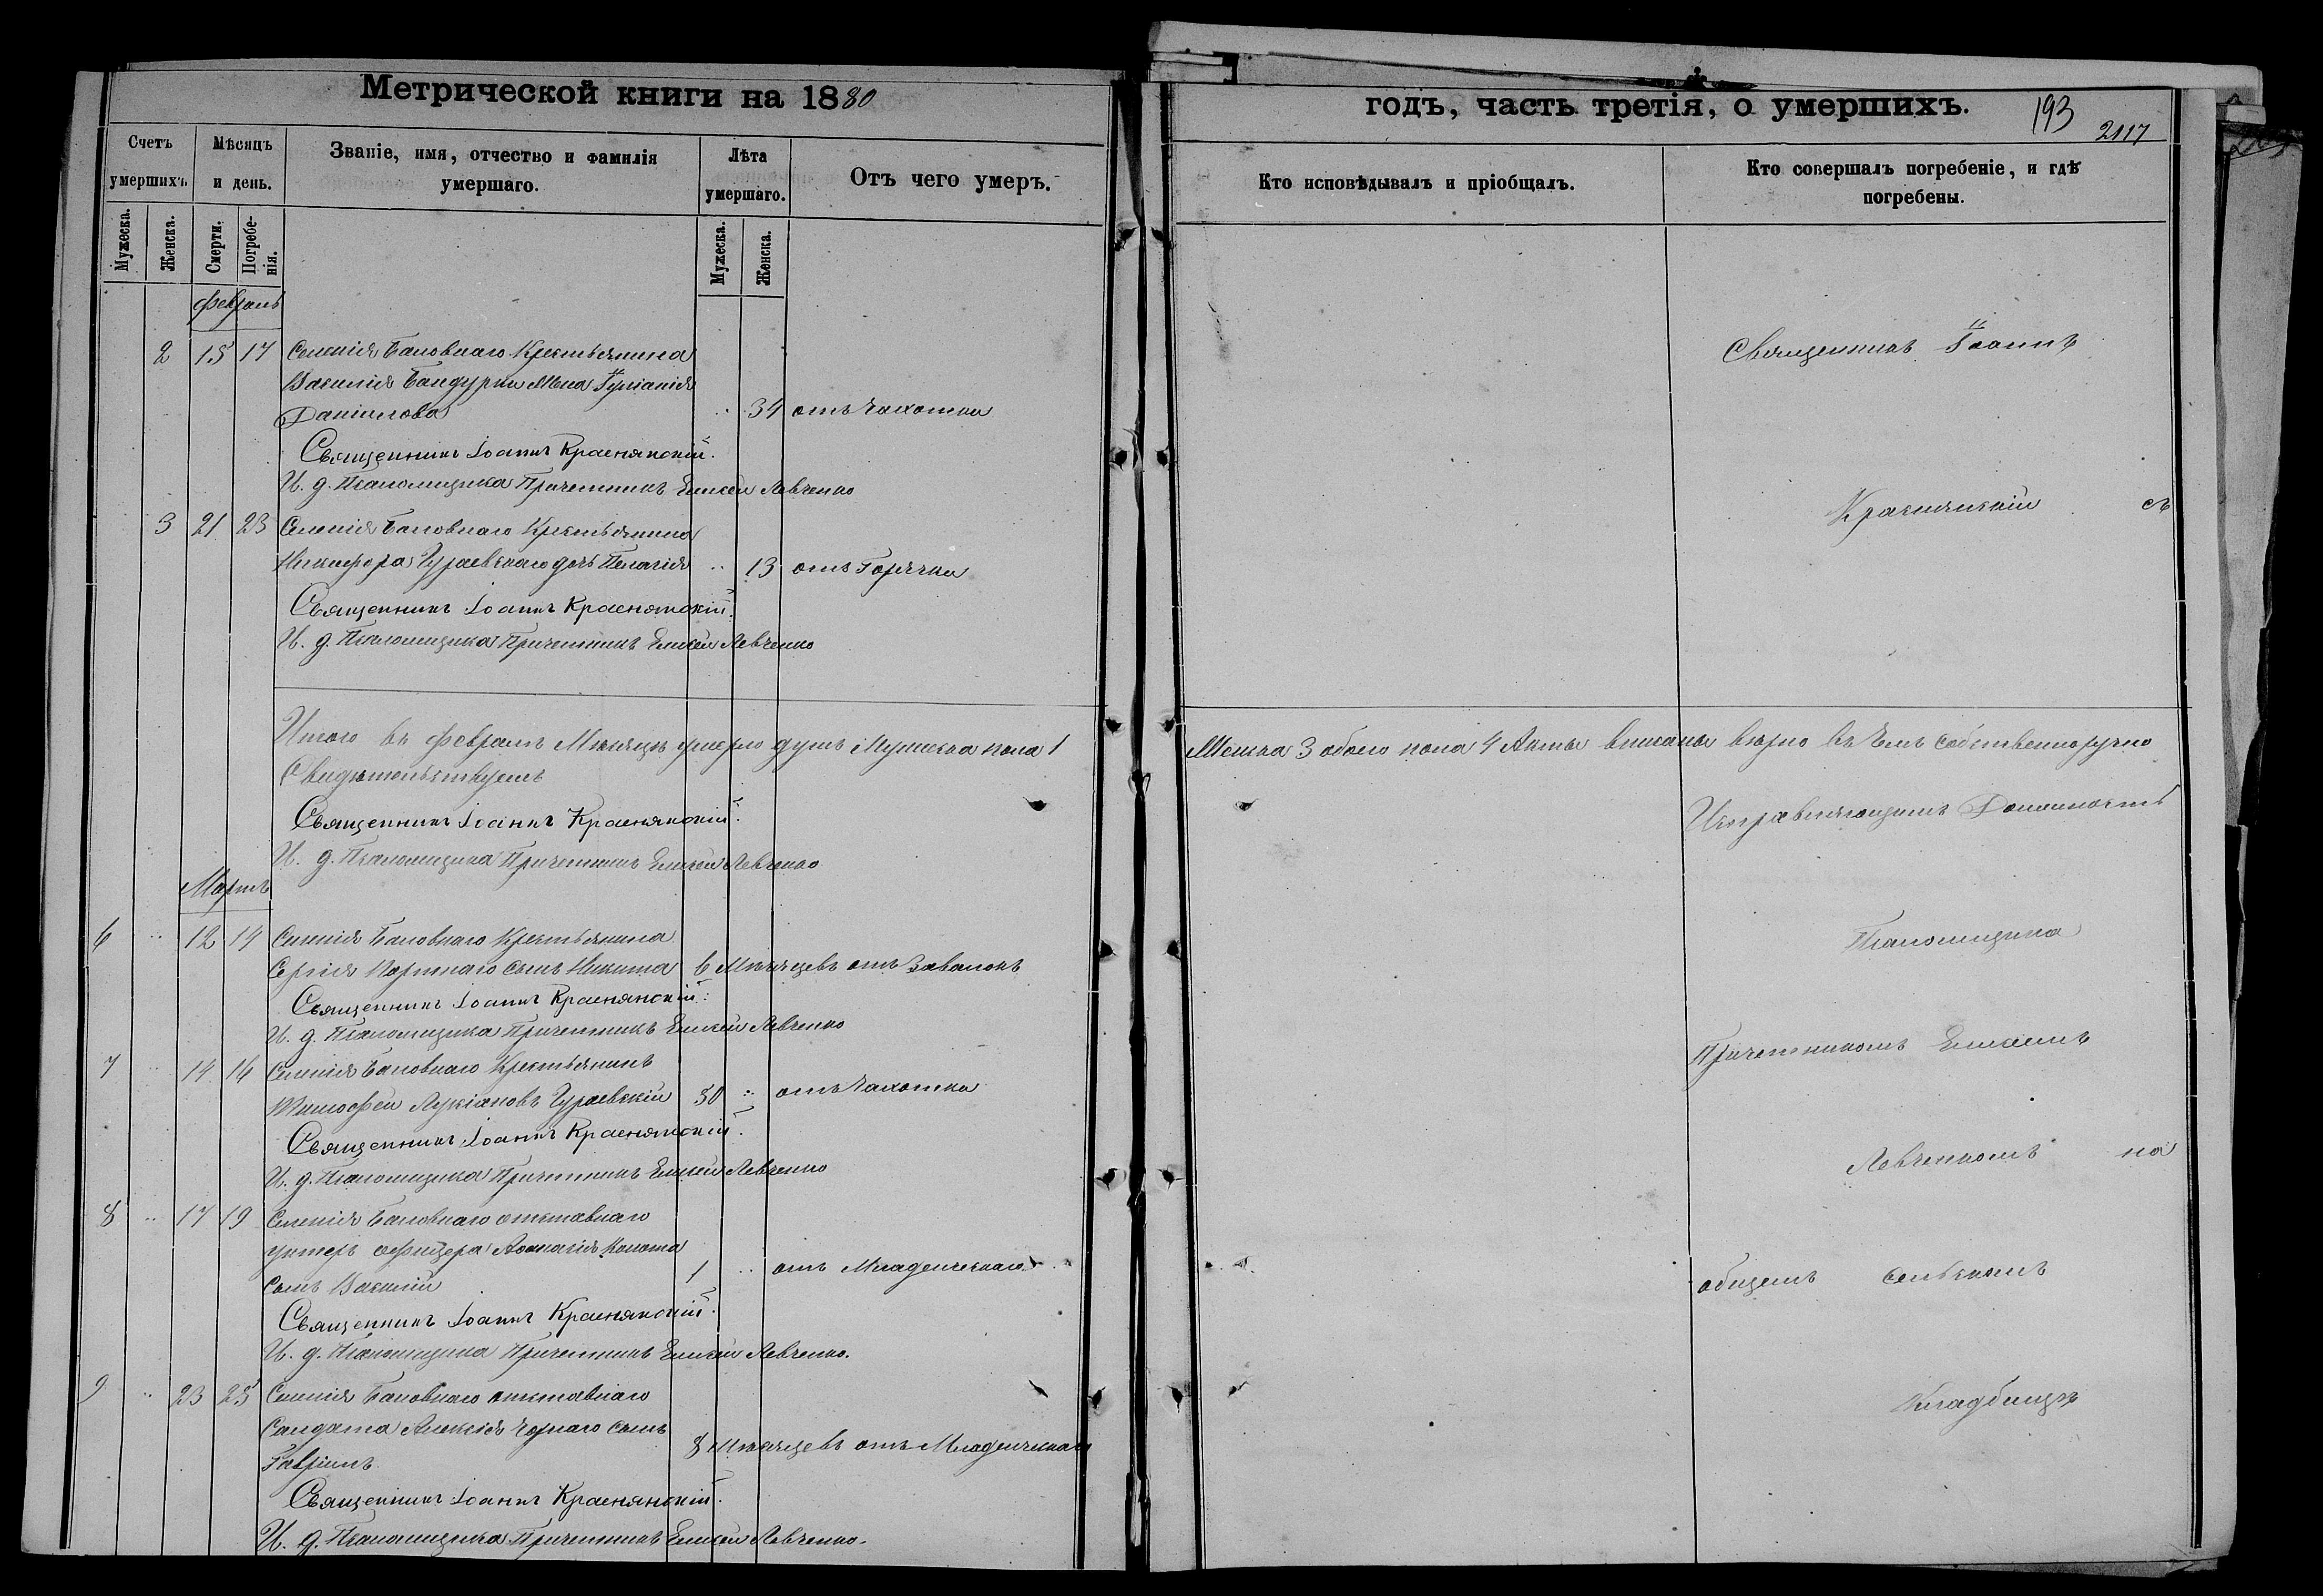 Метрической книги на 1880
годъ, часть третія, о умершихъ.
193
2117
Счетъ умершихъ.
Мѣсяцъ и день.
Званіе, имя, отчество и фамилія умершаго.
Лѣта умершаго.
Отъ чего умеръ.
Кто исповѣдывалъ и пріобщалъ.
Кто совершалъ погребеніе, и гдѣ погребены.
Мужеска.
Женска.
Смерти.
Погребенія.
Мужеска.
Женска.
Февраль
2 15 17 Селенія Баловнаго Крестьянина
Василія Бандурки Жена Іуліанія
Даніилова .. 34 отъ Чахотки
Священникъ Іоаннъ Краснянскій.
И. д. Псаломщика Причетникъ Елисей Левченко
3 21 23 Селенія Баловнаго Крестьянина
Никифора Чураевскаго дочь Пелагія .. 13 отъ Горячки
Священникъ Іоаннъ Краснянскій.
И. д. Псаломщика Причетникъ Елисей Левченко
Итого въ Февралѣ Мѣсяцѣ умерло душъ Мужеска пола 1
Свидѣтельствуемъ
Священникъ Іоаннъ Краснянскій.
И. д. Псаломщика Причетникъ Елисей Левченко
Мартъ
6 .. 12 14 Селенія Баловнаго Крестьянина
Сергія Портнаго Сынъ Никита 6 Мѣсяцевъ отъ Завалокъ
Священникъ Іоаннъ Краснянскій.
И. д. Псаломщика Причетникъ Елисей Левченко
7 .. 14 16 Селенія Баловнаго Крестьянинъ
Тимофей Лукіановъ Чураевскій 50 .. отъ Чахотки
Священникъ Іоаннъ Краснянскій.
И. д. Псаломщика Причетникъ Елисей Левченко
8 .. 17 19 Селенія Баловнаго отставнаго
унтеръ офицера Аѳанасія
Сынъ Василій 1 .. отъ Младенческаго
Священникъ Іоаннъ Краснянскій.
И. д. Псаломщика Причетникъ Елисей Левченко.
9 .. 23 25 Селенія Баловнаго отставнаго
Салдата Алексія Чорнаго Сынъ
Гавріилъ 8 мѣсяцевъ отъ Младенческаго
Священникъ Іоаннъ Краснянскій.
И. д. Псаломщика Причетникъ Елисей Левченко.
Священникъ Іоаннъ
Краснянскій съ
Женска 3 обоего пола 4 Акты вписаны вѣрно въ чемъ собственноручно
Исправляющимъ Должность
Псаломщика
Причетникомъ Елисеемъ
Левченкомъ на
общемъ сельскомъ
Кладбищѣ